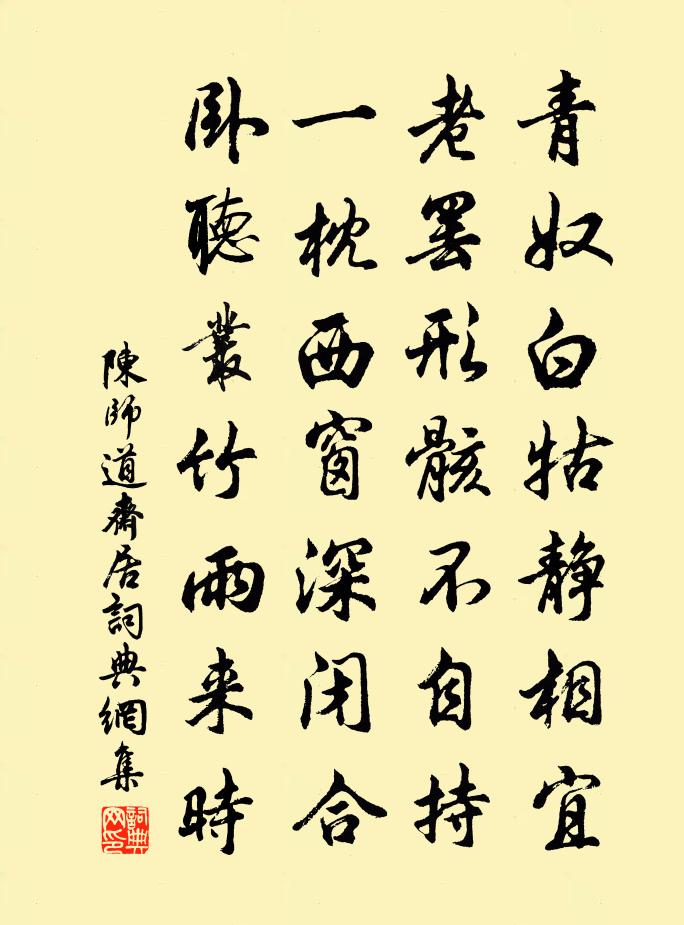 青奴白牯静相宜
老罢形骸不自持
一枕西窗深闭合
卧聽叢竹雨来時
陳師道齋居詞典網集
詞典网印